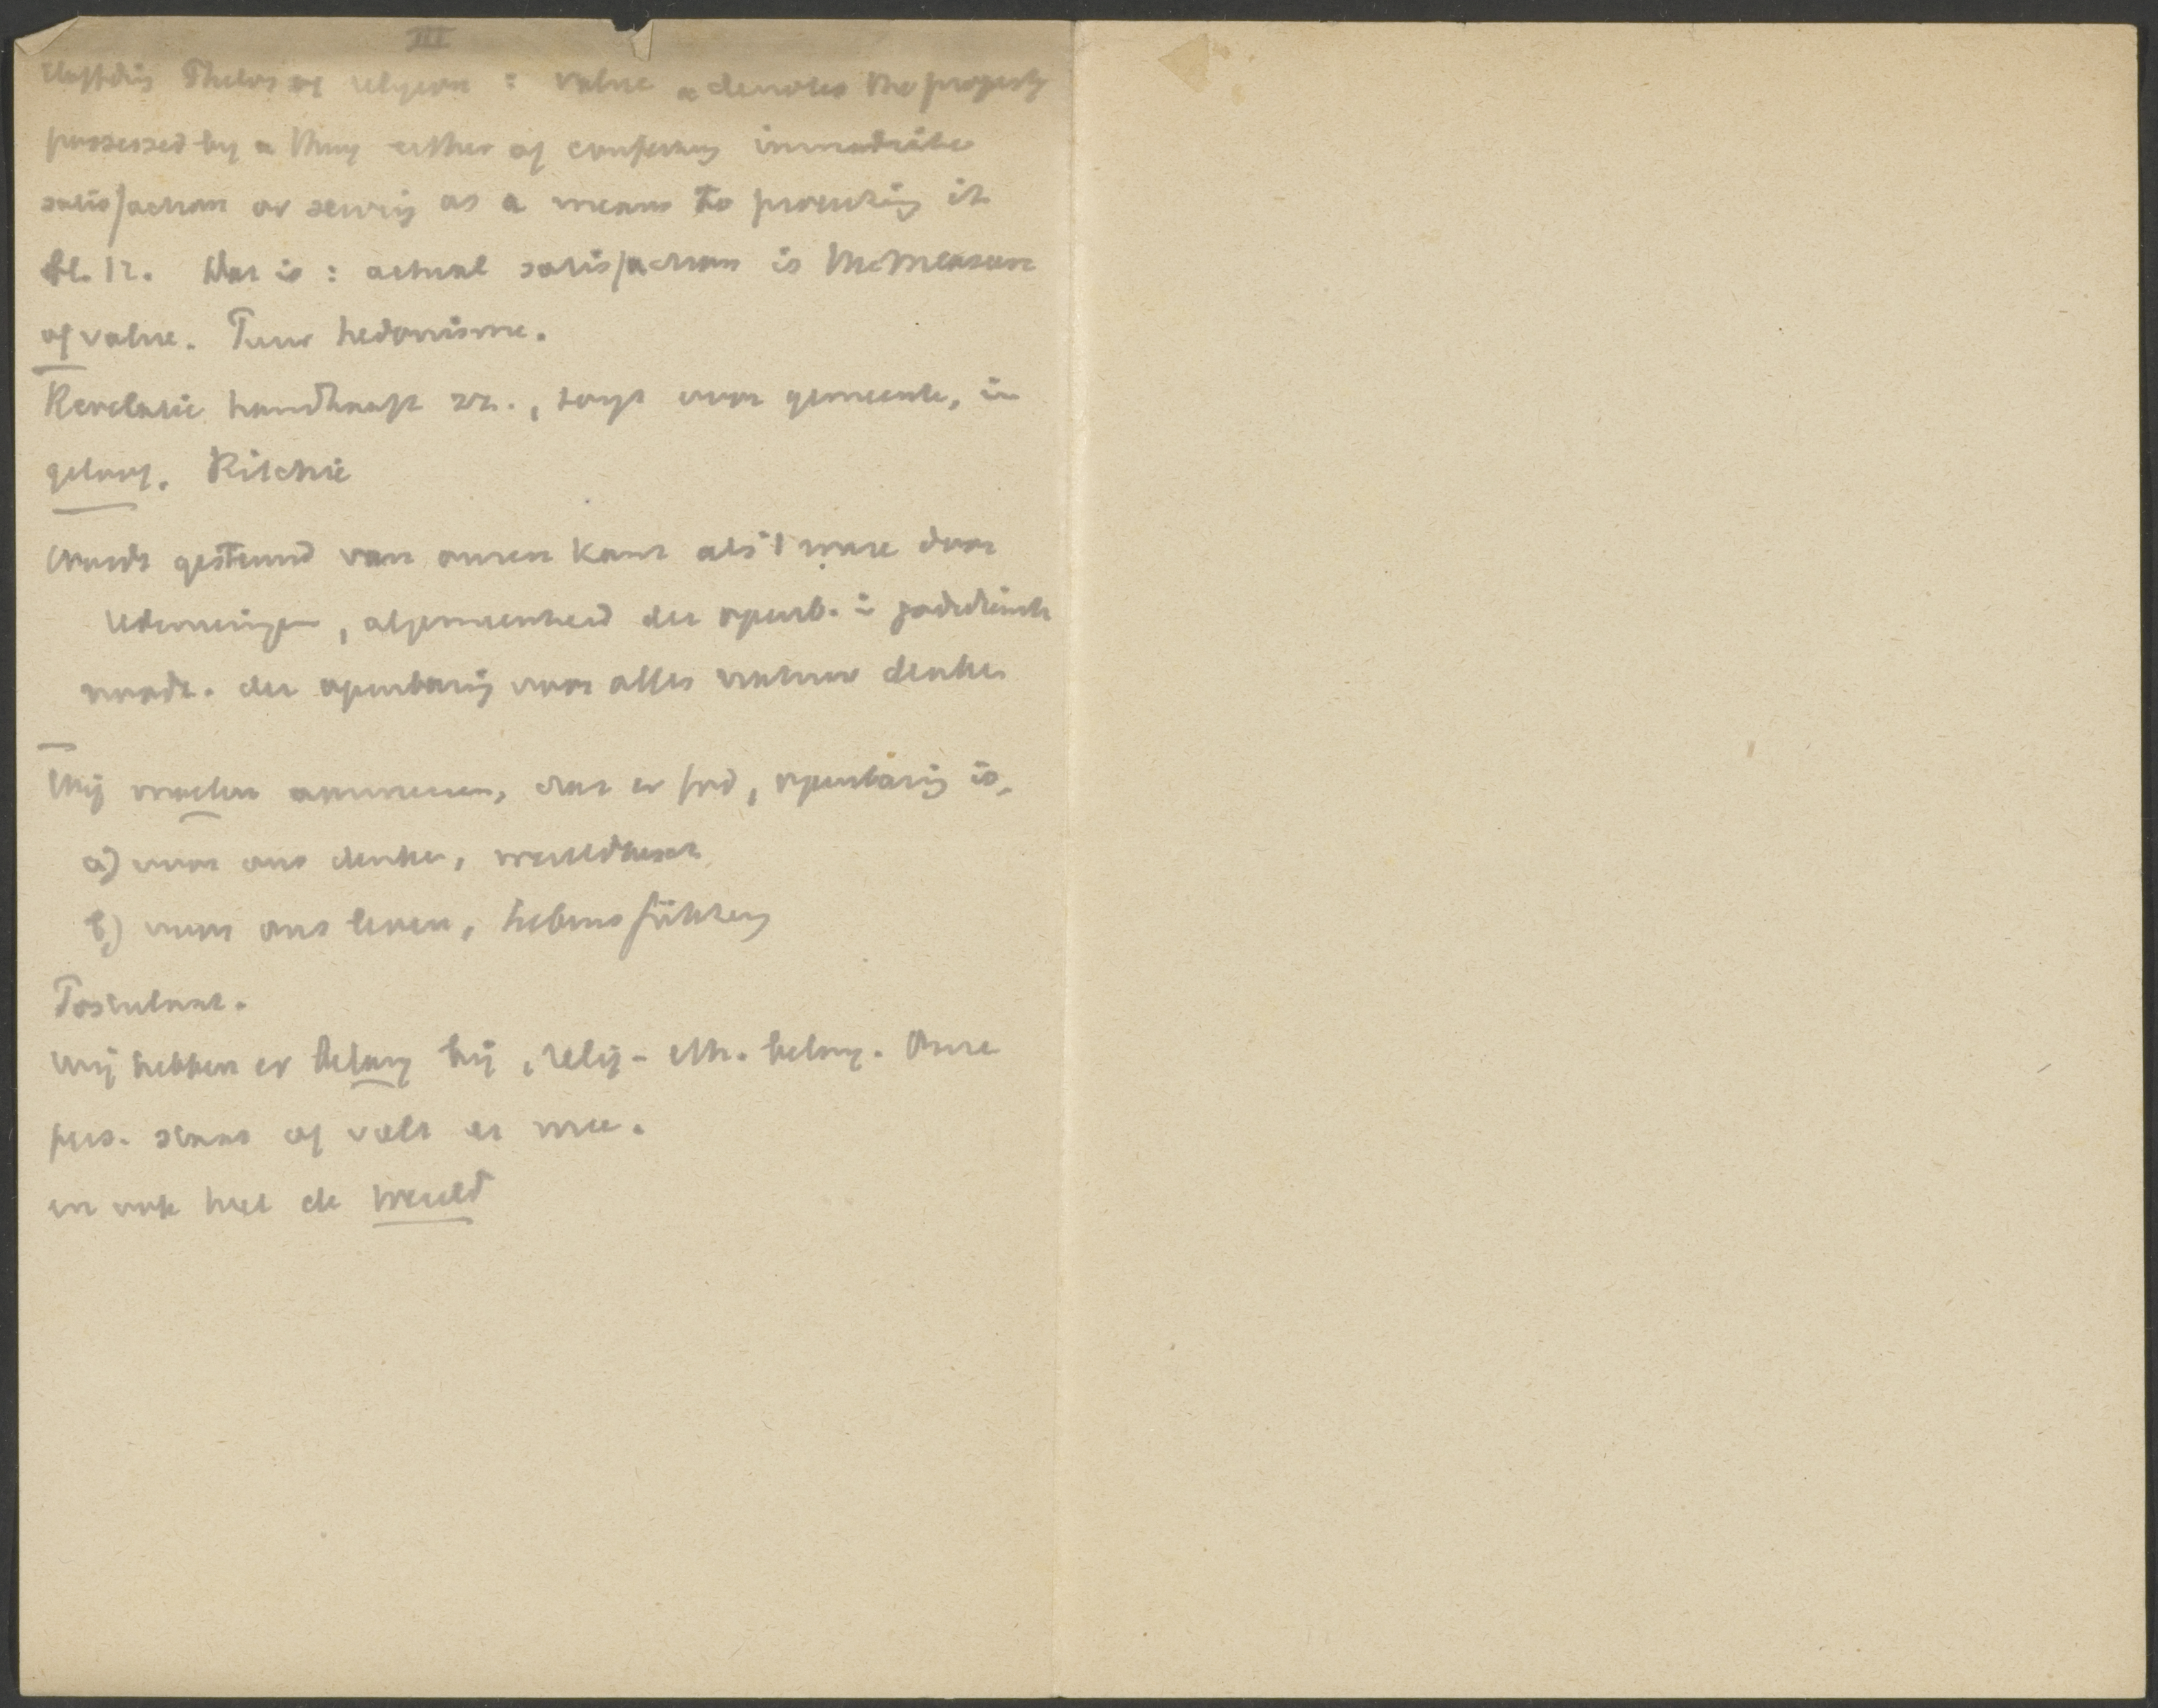 III
Philos of religion : value denotes the property
possessed by a thing either of conferring immediate
satisfaction or serving as a means to procuring it
bl. 12. Dat is : actual satisfaction is the measure
of value. Puur hedonisme.
Revelatie handhaaft zz., voor gemeente, in
geloof. Ritchie
Wordt gesteund van anderen kant als 't ware door
, algemeenheid der openb. i godsdienst
noodz. der openbaring voor alles natuur denken
Wij moeten aannemen, dat er God, openbaring is,
a) voor ons denken, wereldbesch.
b) voor ons leven, Lebensführung
Postulaat.
Wij hebben er belang bij, relig-eth. belang. Onze
pers. staat of valt er mee.
en ook heel de wereld